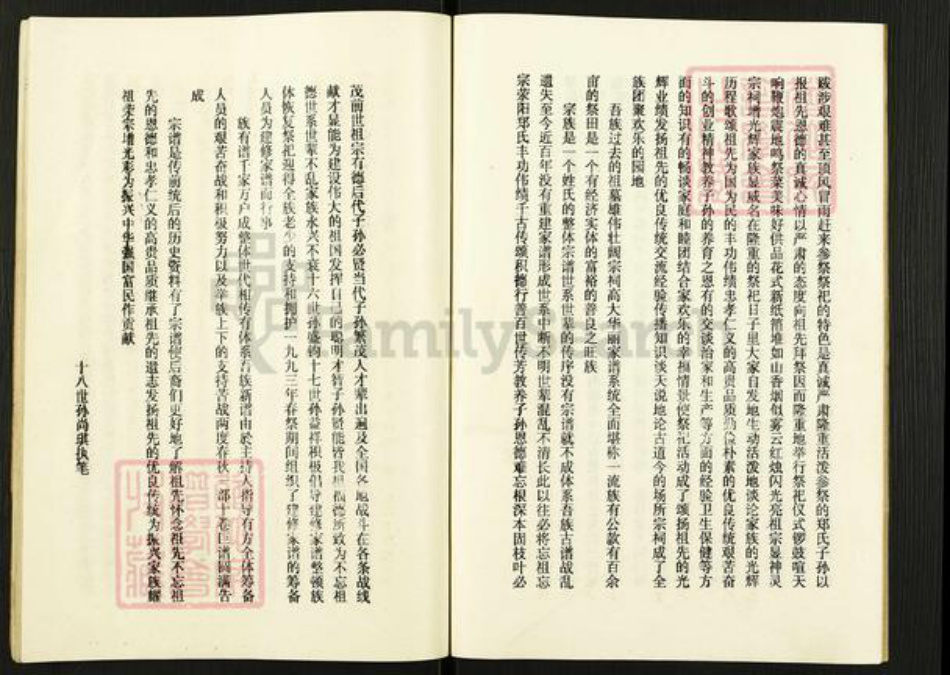 跋涉艰难甚至顶风冒雨赶来参祭祭祀的特色是真诚严肃隆重活泼参祭的郑氏子孙以
报祖先恩德的真诚心情以严肃的态度向祖先拜祭因而隆重地举行祭祀仪式锣鼓喧天
响鞭炮震地鸣祭菜美味好供品花式新纸箔堆如山香烟似雾云红烛闪光亮祖宗显神灵
宗祠增光辉家族显威名在隆重的祭祀日子里大家自发地生动活泼地谈论家族的光辉
历程歌颂祖先为国为民的丰功伟绩忠孝仁义的高贵品质勤俭朴素的优良传统艰苦奋
斗的创业精神教养子孙的养育之恩有的交谈治家和生产等方面的经验卫生保健等方
面的知识有的畅谈家庭和睦团结合家欢乐的幸福情景使祭祀活动成了颂扬祖先的光
辉业绩发扬祖先的优良传统交流经验传播知识谈天说地论古道今的场所宗祠成了全
族团聚欢乐的园地
吾族过去的祖墓雄伟壮阔宗祠高大华丽家谱系统全面堪称一流族有公款有百余
亩的祭田是一个有经济实体的富裕的善良之旺族
宗族是一个姓氏的整体宗谱世系世辈的传序没有宗谱就不成体系吾族古谱战乱
遗失至今近百年没有重建家谱形成世系中断不明世辈混乱不清长此以往必将忘祖忘
宗荥阳郑氏丰功伟绩千古传颂积德行善百世传芳教养子孙恩德难忘根深本固枝叶必
茂前世祖宗有德后代子孙必贤当代子孙繁茂人才辈出遍及全国各地战斗在各条战线
献才显能为建设伟大的祖国发挥自己的聪明才智子孙贤能皆我祖福德所致为不忘祖
德世系世辈不乱家族永兴不衰十六世孙盛钧十七世孙益祥积极倡导建修家谱整顿族
体恢复祭祀迎得全族老少的支持和拥护一九九三年春祭期间组织了建修家谱的筹备
人员为建修家谱而行事
族有谱千家万户成整体世代相传有体系吾族新谱由於主持人指导有方全体筹备
人员的艰苦奋战和积极努力以及举族上下的支持苦战两度春秋一部十卷巨谱圆满告
成
宗谱是传前统后的历史资料有了宗谱使后裔们更好地了解祖先怀念祖先不忘祖
先的恩德和忠孝仁义的高贵品质继承祖先的遗志发扬祖先的优良传统为振兴家族耀
祖荣宗增光彩为振兴中华强国富民作贡献
十八世孙尚琪执笔
FamilySearch